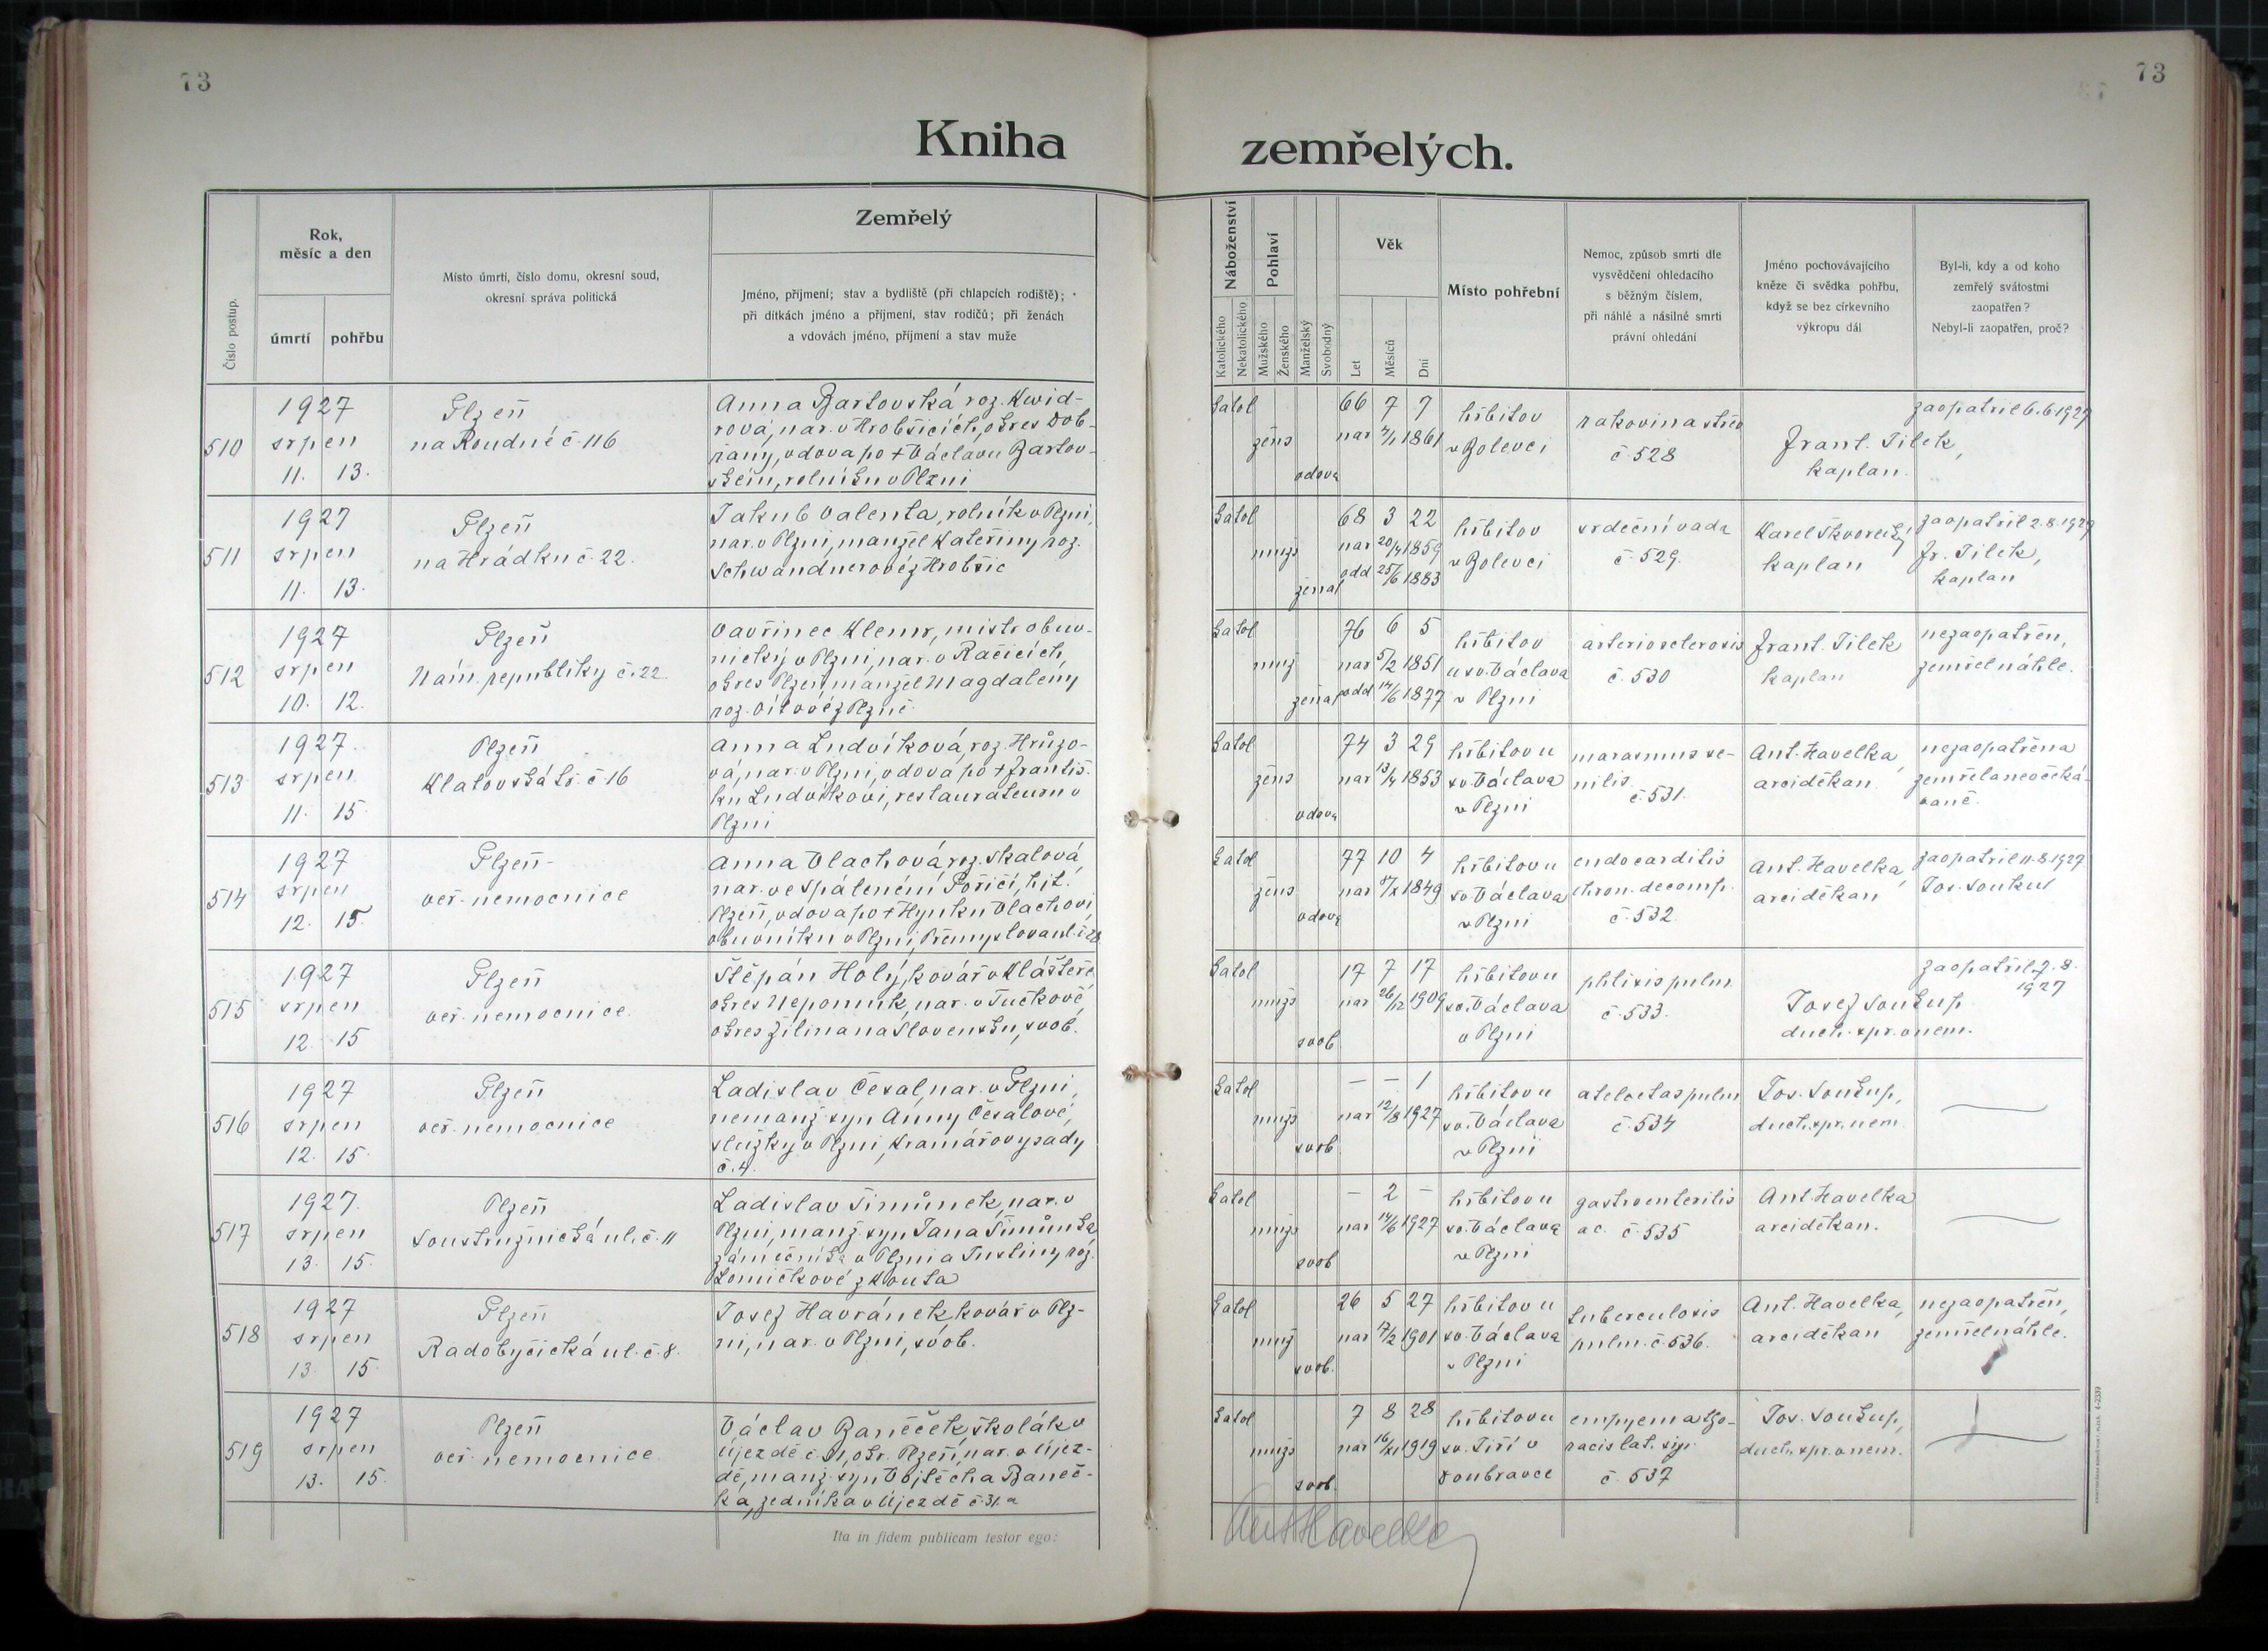 73
73
Kniha zemřelých.
Číslo postup.
Rok,
měsíc a den
úmrtí
pohřbu
Místo úmrtí, číslo domu, okresní soud,
okresní správa politická
Zemřelý
Jméno, příjmení; stav a bydliště (při chlapcích rodiště);
při dítkách jméno a příjmení, stav rodičů; při ženách
a vdovách jméno, příjmení a stav muže
Náboženství
Katolického
Nekatolického
Pohlaví
Mužského
Ženského
Manželský
Svobodný
Věk
Let
Měsíců
Dní
Místo pohřební
Nemoc, způsob smrti dle
vysvědčení ohledacího
s běžným číslem,
při náhlé a násilné smrti
právní ohledání
Jméno pochovávajícího
kněze či svědka pohřbu,
když se bez církevního
výkropu dál
Byl-li, kdy a od koho
zemřelý svátostmi
zaopatřen?
Nebyl-li zaopatřen, proč?
510
1927
srpen
11. 13.
Plzeň
na Roudné č. 116
Anna Bartovská roz. Kwid-
rová, nar. v Hrobšicích, okres Dob-
řany, vdova po + Václavu Bartov-
ském, rolníku v Plzni
katol
žens
vdova
66 7 7
nar 4/1 1861
hřbitov
v Bolevci
rakovina střev
č. 528
Frant. Tilek,
kaplan.
zaopatřil 6.6.1927
511
1927
srpen
11. 13.
Plzeň
na Hrádku č. 22.
Jakub Valenta, rolník v Plzni,
nar. v Plzni, manžel Kateřiny roz.
Schwandnerové z Hrobšic
katol
mužs
ženat
68 3 22
nar 20/4 1859
odd 25/6 1883
hřbitov
v Bolevci
srdeční vada
č. 529.
Karel Škvorecký
kaplan
zaopatřil 2.8.1927
Fr. Tilek,
kaplan
512
1927
srpen
10. 12.
Plzeň
Nám. republiky č. 22.
Vavřinec Klemr, mistr obuv-
nický v Plzni, nar. v Račicích,
okres Plzeň, manžel Magdaleny
roz. Vítové z Plzně
katol
muž
ženat
76 6 5
nar 5/2 1851
odd 14/6 1877
hřbitov
u sv. Václava
v Plzni
arteriosclerosis
č. 530
Frant. Tilek
kaplan
nezaopatřen,
zemřel náhle.
513
1927.
srpen
11. 15.
Plzeň
Klatovská tř. č. 16
Anna Ludvíková, roz. Hrůzo-
vá, nar. v Plzni, vdova po + Františ-
ku Ludvíkovi, restaurateuru v
Plzni
katol
žens
vdova
74 3 29
nar 13/4 1853
hřbitov u
sv. Václava
v Plzni
marasmus se-
nilis.
č. 531.
Ant. Havelka,
arciděkan.
nezaopatřena
zemřela neočeká-
vaně.
514
1927
srpen
12. 15.
Plzeň-
veř. nemocnice
Anna Vlachová, roz. Skalová,
nar. ve Spáleném Poříčí, hjt.
Plzeň, vdova po + Hynku Vlachovi,
obuvníku v Plzni, Přemyslova ul. č. 28
katol
žens
vdova
77 10 4
nar 8/X 1849
hřbitov u
sv. Václava
v Plzni
endocarditis
chron. decomp.
č. 532.
Ant. Havelka,
arciděkan
zaopatřil 11.8.1927
Jos. Soukup
515
1927
srpen
12. 15
Plzeň
veř. nemocnice.
Štěpán Holý, kovář v Klášteře,
okres Nepomuk, nar. v Tučkově,
okres Žilina na Slovensku, svob.
katol
mužs
svob
17 7 17
nar 26/12 1909
hřbitov u
sv. Václava
v Plzni
phtisis pulm.
č. 533.
Josef Soukup
duch. spr. v nem.
zaopatřil 7.8.
1927
516
1927
srpen
12. 15.
Plzeň
veř. nemocnice
Ladislav Česal, nar. v Plzni,
nemanž. syn Anny Česalové,
služky v Plzni, Kramářovy sady
č. 4.
katol
mužs
svob
— — 1
nar 12/8 1927
hřbitov u
sv. Václava
v Plzni
atelectas pulm
č. 534
Jos. Soukup,
duch. spr. nem
—
517
1927.
srpen
13. 15.
Plzeň
Soustružnická ul. č. 11
Ladislav Šimůnek, nar. v
Plzni, manž. syn Jana Šimůnka,
zámečníka v Plzni a Justiny roz.
Lomičkové z Kouta
katol
mužs
svob
— 2 —
nar 14/6 1927
hřbitov u
sv. Václava
v Plzni
gastroenteritis
ac. č. 535
Ant. Havelka
arciděkan.
—
518
1927
srpen
13. 15.
Plzeň
Radobyčická ul. č. 8.
Josef Havránek, kovář v Plz-
ni, nar. v Plzni, svob.
katol
muž
svob.
26 5 27
nar 17/2 1901
hřbitov u
sv. Václava
v Plzni
tuberculosis
pulm. č. 536.
Ant. Havelka,
arciděkan
nezaopatřen,
zemřel náhle.
519
1927
srpen
13. 15.
Plzeň
veř. nemocnice.
Václav Baněček, školák v
Újezdě č. 31, okr. Plzeň, nar. v Újez-
dě, manž. syn Vojtěcha Baněč-
ka, zedníka v Újezdě č. 31.
katol
mužs
svob.
7 8 28
nar 16/XI 1919
hřbitov u
sv. Jiří v
Doubravce
empyema tho-
racis lat. sin.
č. 537
Jos. Soukup,
duch. spr. v nem.
—
Ita in fidem publicam testor ego:
Ant Havelka